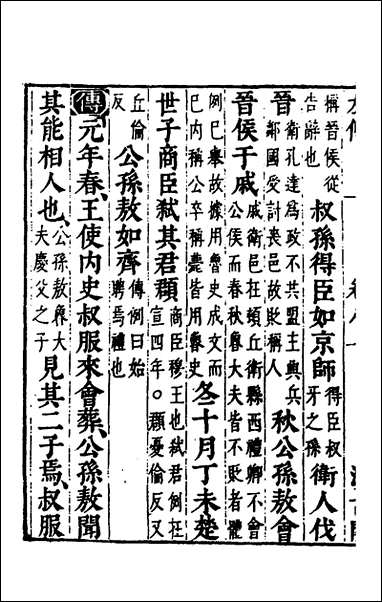 稱晉侯從告辭也叔孫得臣如京師得臣叔牙之孫衛人伐
晉衛孔達為政不共盟主興兵鄰國受討喪邑故貶稱人秋公孫敖會
晉侯于戚戚衛邑在頓丘衛縣西禮卿不會公侯而春秋魯大夫皆不貶者體
例已舉故據用魯史成文而已內稱公卒稱薨皆用魯史冬十月丁未楚
世子商臣弒其君頵商臣穆王也弒君例在宣四年○頵憂倫反又
丘倫反公孫敖如齊傳例曰始聘焉禮也
傳元年春、王使内史叔服來會葬、公孫敖聞
其能相人也、公孫敖魯大夫慶父之子見其二子焉、叔服